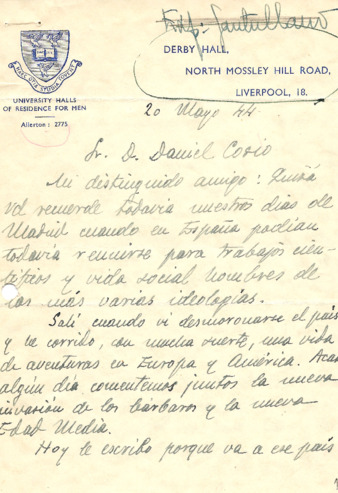 Exp: Santullano
DERBY HALL,
NORTH MOSSLEY HILL ROAD,
LIVERPOOL, 18.
HAEC OTIA STUDIA FOVENT
UNIVERSITY HALLS
OF RESIDENCE FOR MEN
Allerton: 2775
20 Mayo 44
Sr. D. Daniel Cosio
Mi distinguido amigo: Quizá
vd recuerde todavia nuestros dias de
Madrid cuando en España podian
todavia reunirse para trabajos cien-
tíficos y vida social hombres de
las más varias ideologías.
Salí cuando vi desmoronarse el país
y he corrido, con mucha suerte, una vida
de aventuras en Europa y América. Acaso
algún dia comentemos juntos la nueva
invasión de los bárbaros y la nueva
Edad Media.
Hoy le escribo porque va a ese país